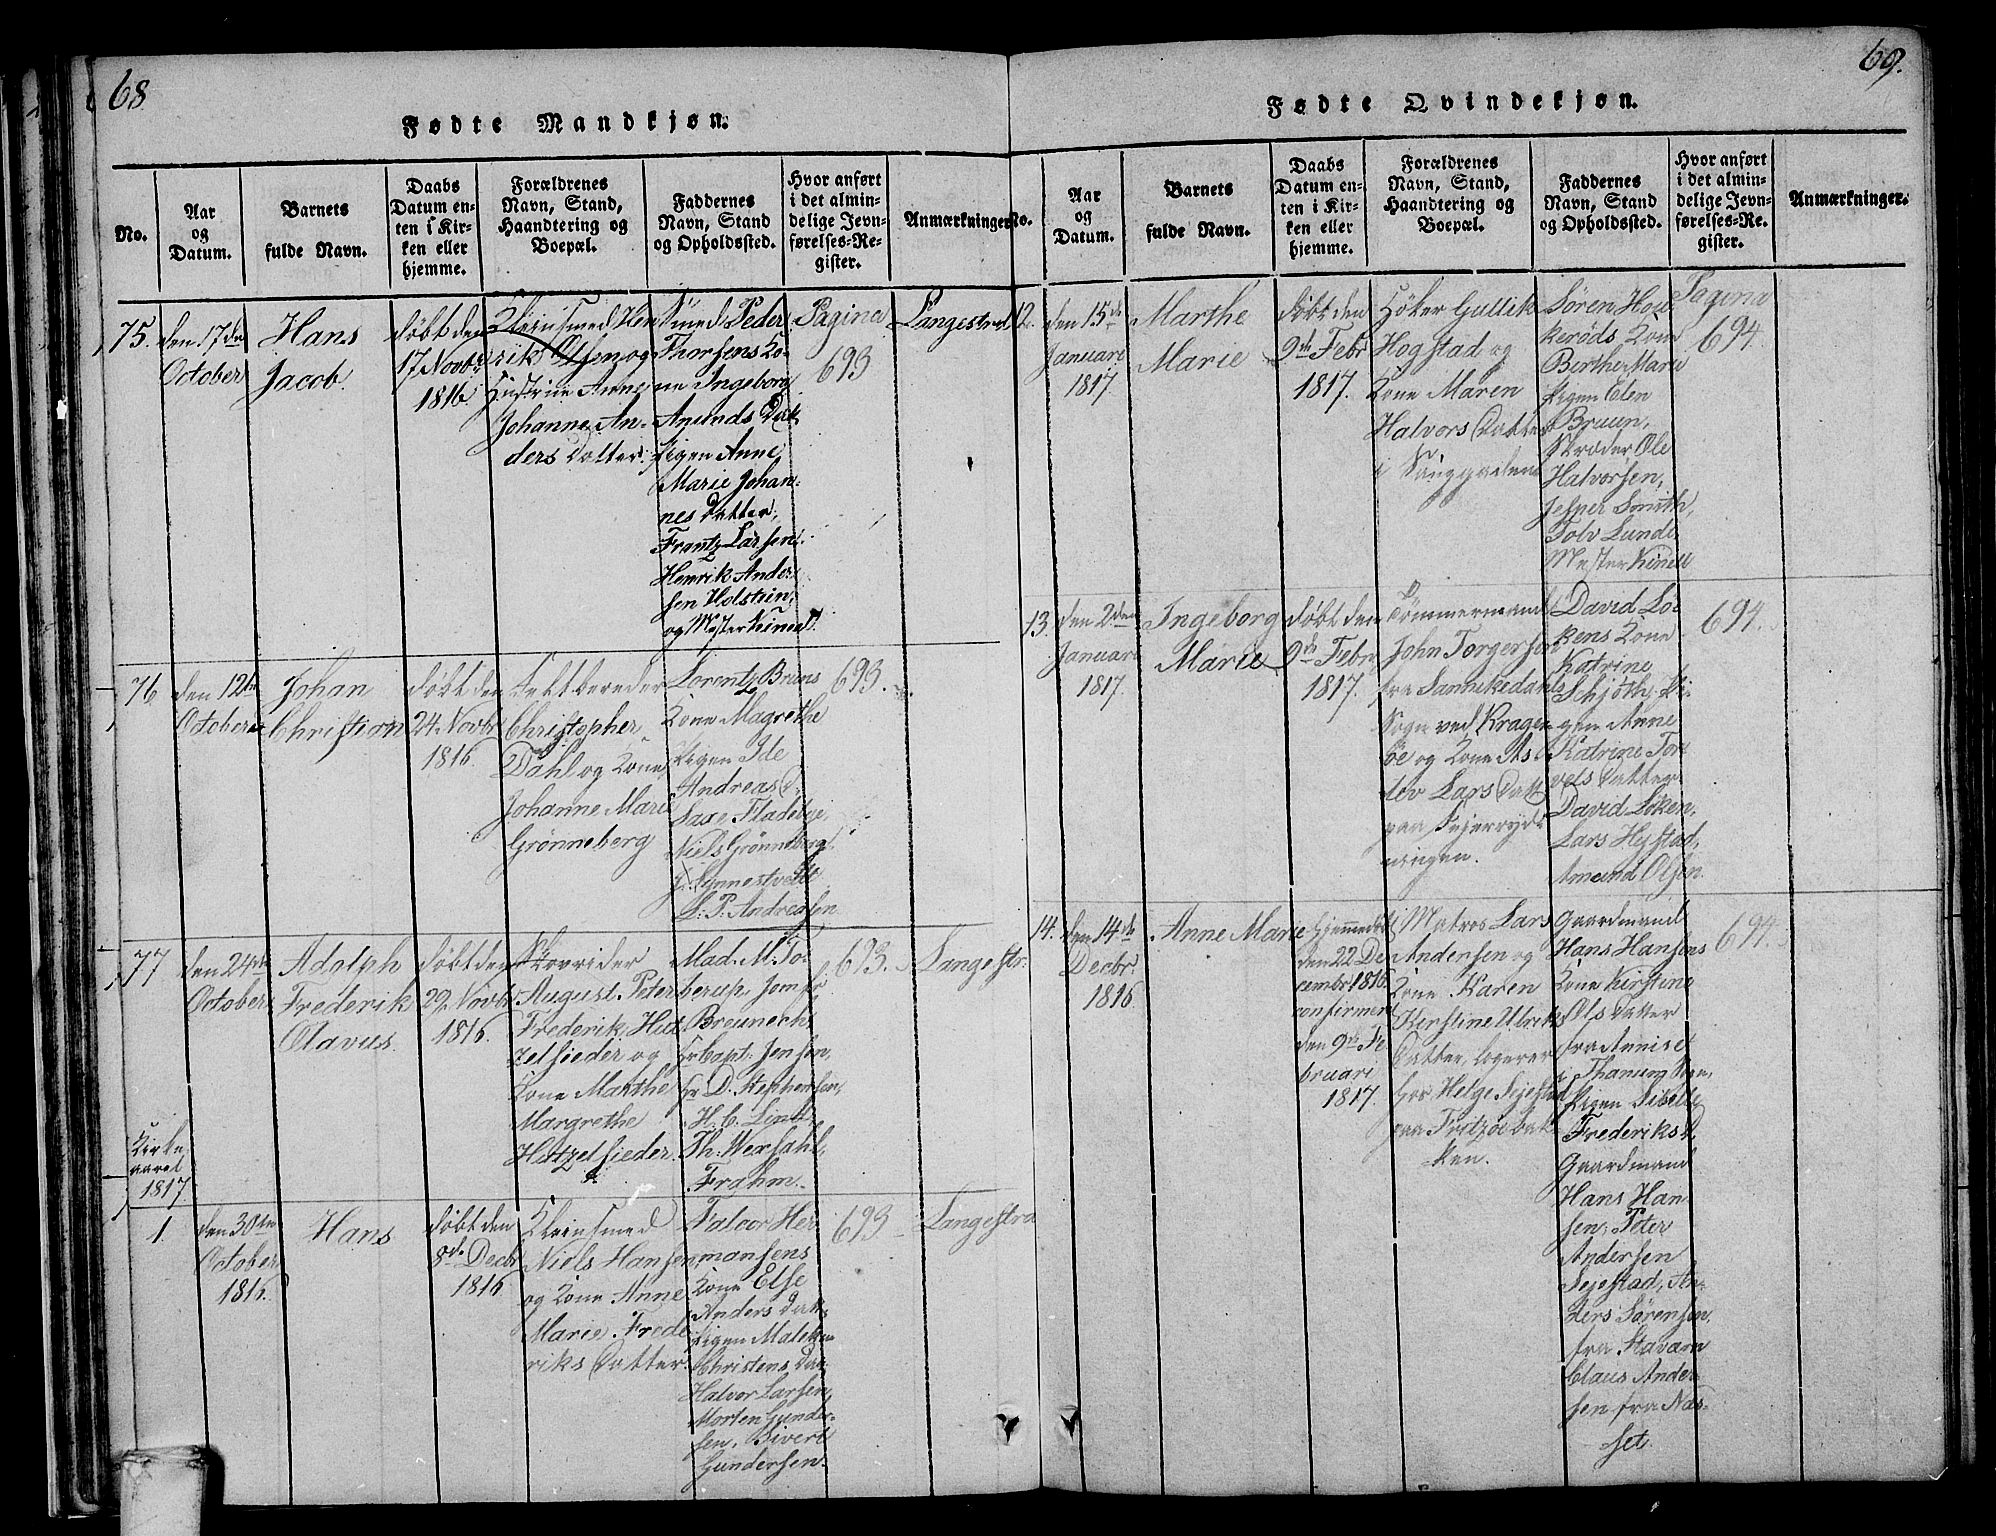 68
Fødte Mandkjøn.
No.
Aar
og
Datum.
Barnets
fulde Navn.
Daabs
Datum en-
ten i Kir-
ken eller
hjemme.
Forældrenes
Navn, Stand,
Haandtering og
Boepæl.
Faddernes
Navn, Stand
og Opholdssted.
Hvor anført
i det almin-
delige Jevn-
førelses-Re-
gister.
Anmærkninger.
75.
den 17de
October
Hans
Jacob.
døbt den
17 Novbr
1816
Kleinsmed Hen
rik Olsen og
Hustrue Anne
Johanne An-
ders Datter.
Smed Peder
Thorsens Ko-
ne Ingeborg
Amunds Datt
Pigen Anne
Marie Johan-
nes Datter,
Frantz Larsen
Henrik Ander-
sen Holstein,
og Mester Kinell.
Pagina
693
Langestræd
76
den 12te
October
Johan
Christian
døbt den
24 Novbr
1816.
Feltbereder
Christopher
Dahl og Kone
Johanne Marie
Grønneberg
Lorentz Bruns
Kone Magrethe
Pigen Ide
Andreas D.
Saxe Fladebye,
Niels Grønneberg
J. Lynnestvedt
L. P. Andresen
693.
77
den 24de
October
Adolph
Frederik
Olavus.
døbt den
29 Novbr
1816.
Skovrider
August Peter
Frederik Hut
zelsieder og
Kone Marthe
Margrethe
Hutzelsieder.
Mad. M. To-
berup, Jomfr
Breunech
Hr Capt. Jensen,
Hr D. Stephensen,
H. C. Lind,
Th. Wexsahl,
Frahm.
693.
Langestr:
Kirke
aaret
1817
1.
den 30te
October
1816.
Hans
døbt den
8de Decbr
1816
Kleinsmed
Niels Hansen
og Kone Anne
Marie Frede
riks Datter
Falvor Her
mansens
Kone Else
Anders Datt
Pigen Malene
Christens Dat
Halvor Larsen,
Morten Gunder-
sen, Sivert
Gundersen.
693
Langestra
69.
Fødte Qvindekjøn.
No.
Aar
og
Datum.
Barnets
fulde Navn.
Daabs
Datum en-
ten i Kir-
ken eller
hjemme.
Forældrenes
Navn, Stand,
Haandtering og
Boepæl.
Faddernes
Navn, Stand
og Opholdssted.
Hvor anført
i det almin-
delige Jevn-
førelses-Re-
gister.
Anmærkninger.
12.
den 15de
Januari
1817.
Marthe
Marie
døbt den
9de Febr
1817.
Høker Gullik
Hogstad og
Kone Maren
Halvors Datter
i
Søren Hou
kerøds Kone
Berthe Marie
Pigen Elen
Bruun,
Skræder Ole
Halvorsen,
Jesper Smith,
Tolv Lunde
Mester Kinell
Pagina
694.
13.
den 2den
Januari
1817.
Ingeborg
Marie
døbt den
9de Febr
1817.
Tømmermand
John Torgersen
fra Sannikedahls
Sogn ved Krager
øe og Kone As
lev Lars Datt
paa
ningen.
David Lø
kens Kone
Katrine
Schjøth, Pi
gen Anne
Katrine Tor
vels Datter
David Løken,
Lars Hystad,
Amund Olsen.
694.
14.
den 14de
Decbr.
1816
Anne Marie
Hjemmedøbt
den 22 De
cembr 1816
confirmert
den 9de Fe
bruari
1817.
Matros Lars
Andersen og
Kone Karen
Kirstine Ulriks
Datter, logerer
hos Helge Sejestad
paa Fritzøebak
ken.
Gaardmand
Hans Hansens
Kone Kirstine
Ols Datter
fra Anniset
i Thanum Sogn,
Pigen Sibille
Frederiks D
Gaardmand
Hans Han
sen, Peter
Andersen
Sejestad, An-
ders Sørensen,
fra Stavarn
Claus Ander
sen fra Næs-
set.
694.